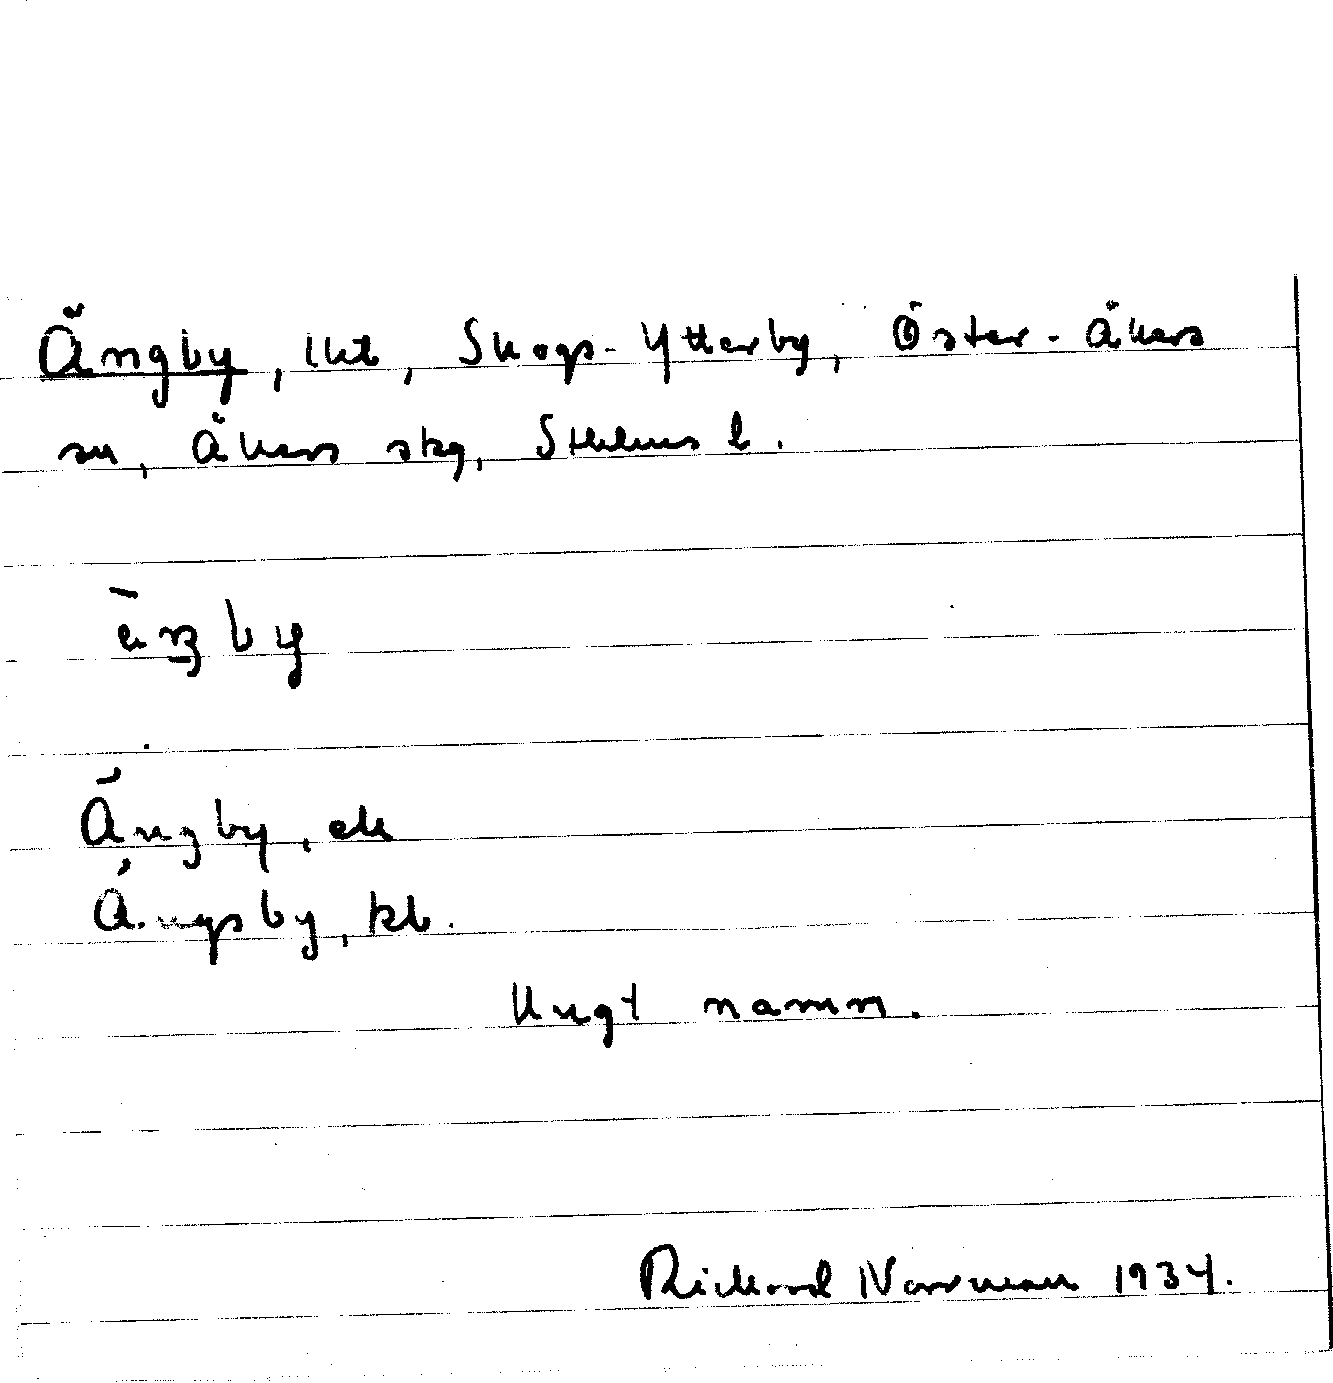 Ängby, lht, Skogs-Ytterby, Öster-Åkers
sn, Åkers skg, Sthlms l.
Ängby, ek
Ängsby, kb.
Ungt namn.
Rickard Norrman 1934.